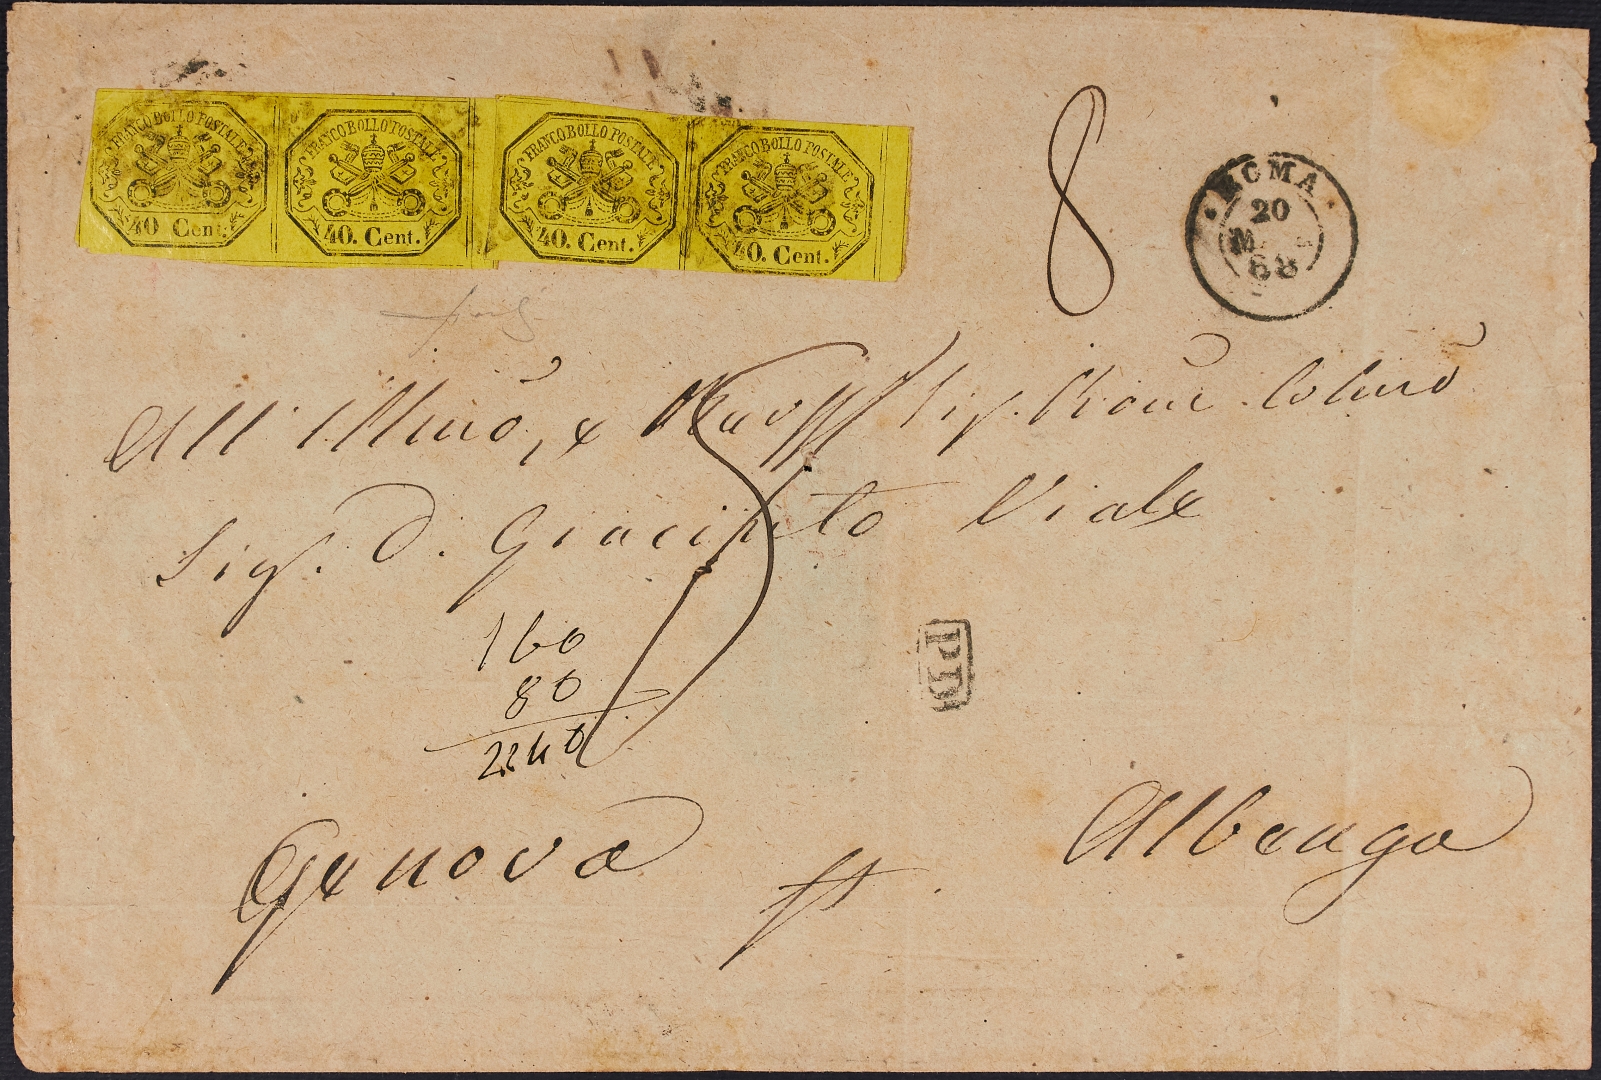 FRANCO BOLLO POSTALE
40 Cent.
FRANCO BOLLO POSTALE
40. Cent.
FRANCO BOLLO POSTALE
40. Cent.
FRANCO BOLLO POSTALE
40. Cent.
8
ROMA
20
68
All' Illmo, e Sig.
Sig. D. Giacinto Viale
160
80
PD
Genova
Albenga